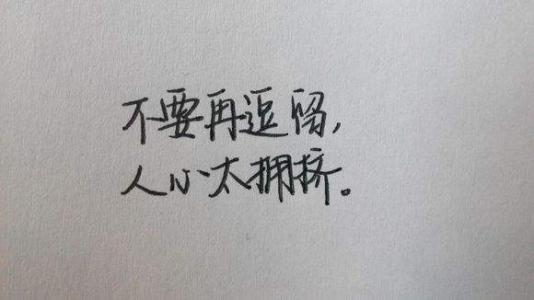 不要再逗留,
人心太拥挤。